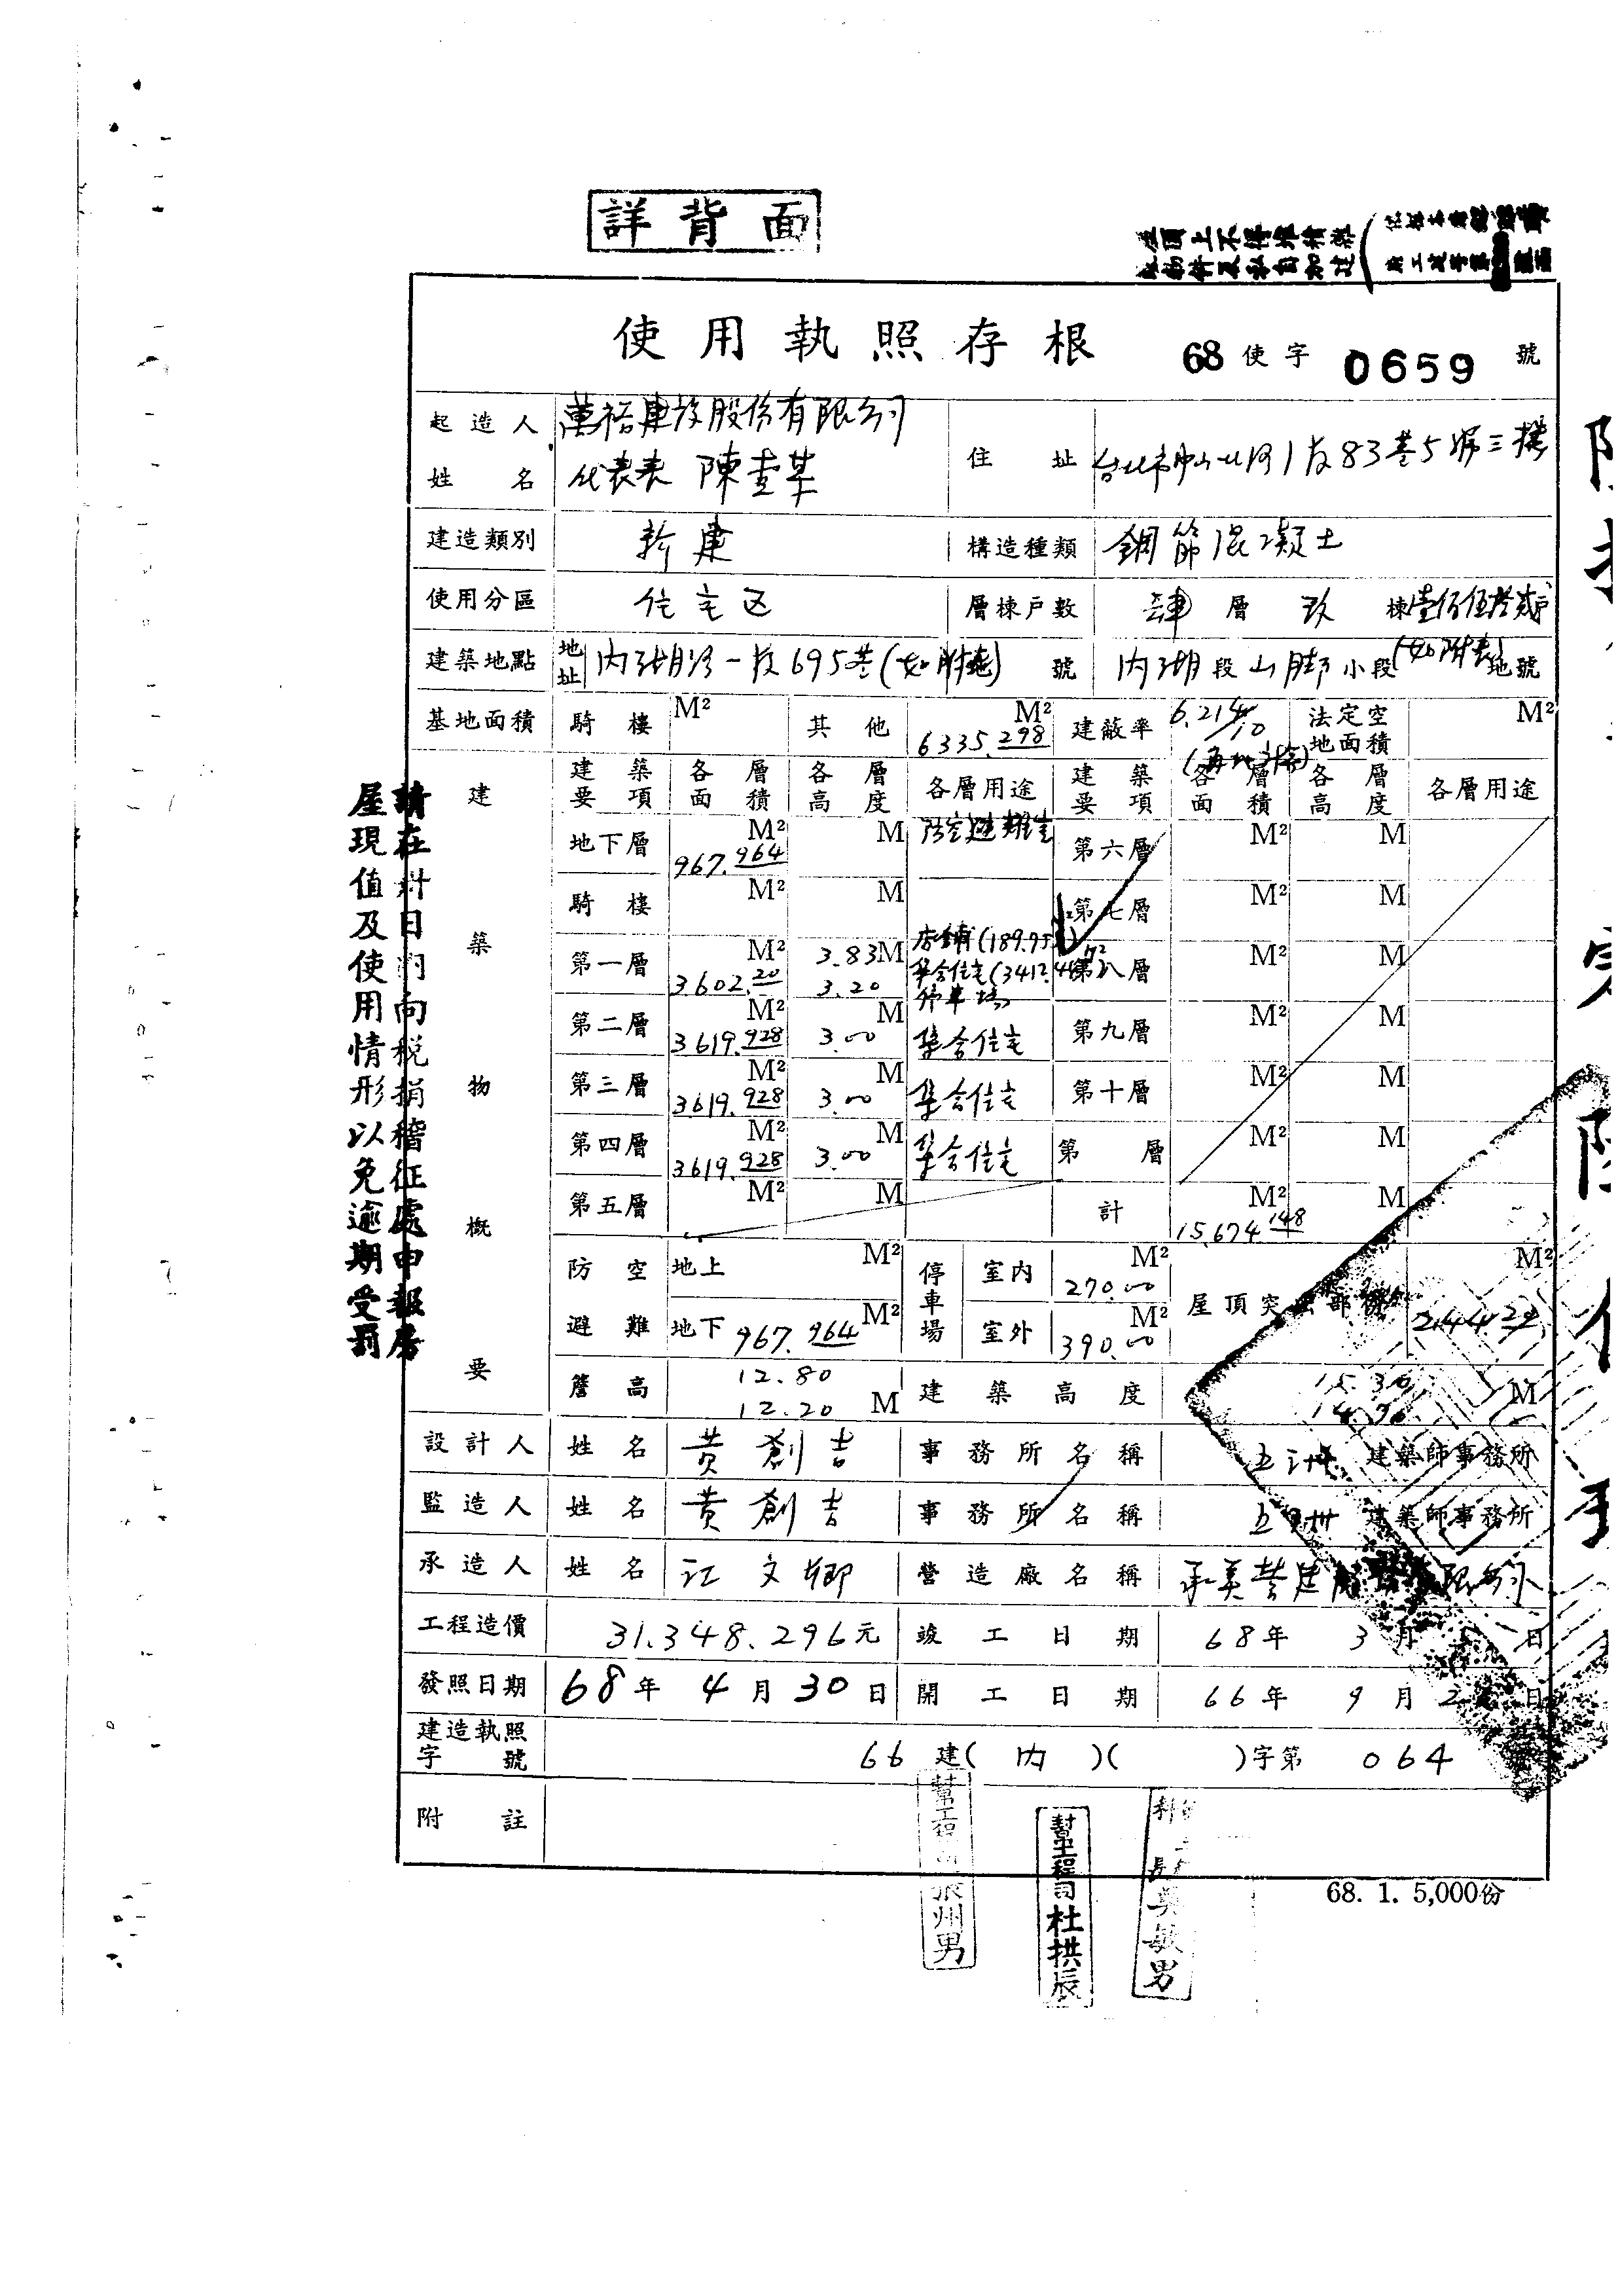 詳背面
使用執照存根 68使字 0659 號
起造人姓名 萬裕建設股份有限公司
代表 陳
住址 台北市中山北路1段83巷5號三樓
建造類別 新建 構造種類 鋼筋混凝土
使用分區 住宅区 層棟戶數 肆層 玖棟壹佰伍拾貳戶
建築地點 地址 內湖路一段695巷(如附表)號 內湖段山腳小段(如附表)地號
基地面積 騎樓 M² 其他 6335.298 M² 建蔽率 6.214/10 法定空地面積 M²
建築物概要
建築要項 各層面積 各層高度 各層用途 建築要項 各層面積 各層高度 各層用途
地下層 967.964 M² M 防空避難室 第六層 M² M
騎樓 M² M 第七層 M² M
第一層 3602.20 M² 3.83M 3.20 店鋪 集合住宅 停車場 第八層 M² M
第二層 3619.928 M² 3.00 M 集合住宅 第九層 M² M
第三層 3619.928 M² 3.00 M 集合住宅 第十層 M² M
第四層 3619.928 M² 3.00 M 集合住宅 第 層 M² M
第五層 M² M 計 15,674.148 M² M
防空避難 地上 M² 停車場 室內 270.00 M² 屋頂突出部 M²
地下 967.964 M² 室外 390.00 M²
簷高 12.80 12.20 M 建築高度 15.30 M
設計人 姓名 黃創吉 事務所名稱 五洲 建築師事務所
監造人 姓名 黃創吉 事務所名稱 五洲 建築師事務所
承造人 姓名 江文鄉 營造廠名稱
工程造價 31.348.296元 竣工日期 68年 3月 日
發照日期 68年 4月 30日 開工日期 66年 9月 日
建造執照字號 66 建( 內 )( )字第 064
附註
請在計日內向稅捐稽征處申報房
屋現值及使用情形以免逾期受罰
幫工程司杜拱辰
68. 1. 5,000份